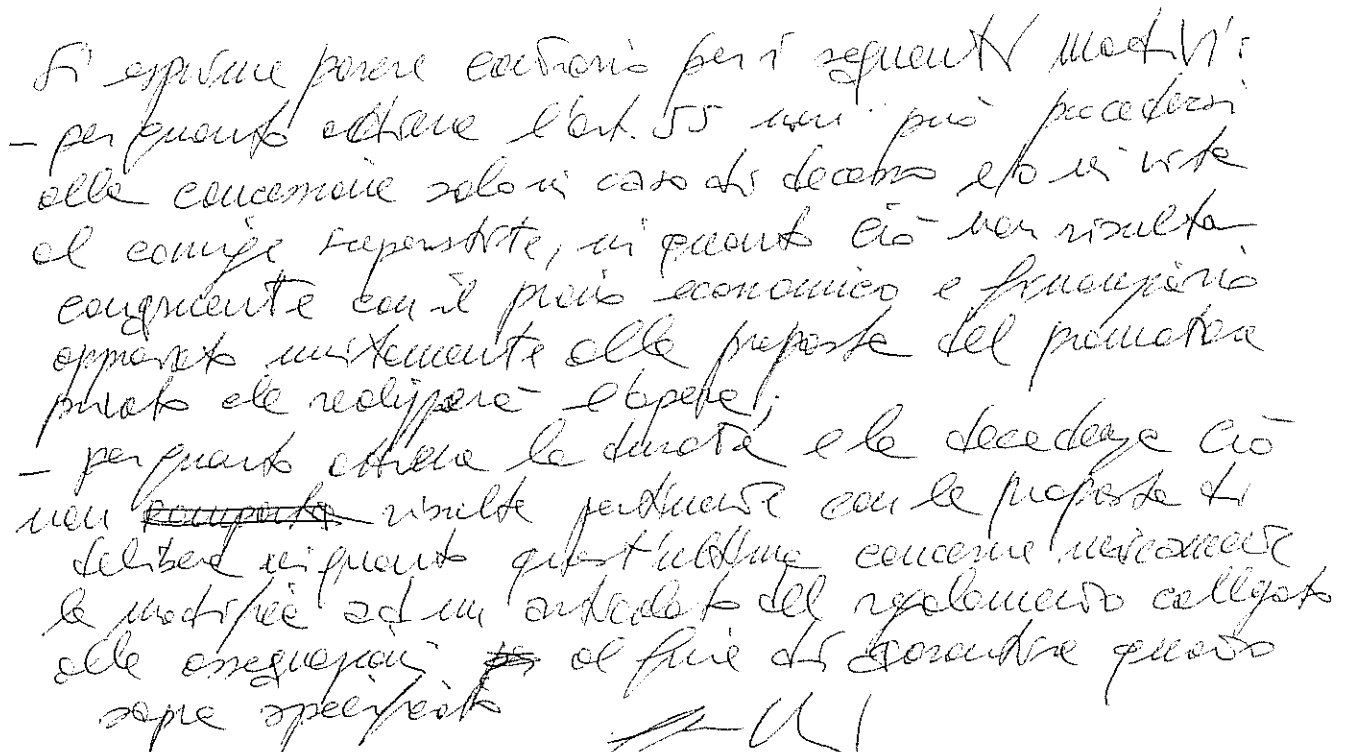 Si esprime parere contrario per i seguenti motivi:
- per quanto attiene l'art. 55 non può procedersi
alla concessione solo in caso di decesso e/o in vita
al coniuge superstite, in quanto ciò non risulta
congruente con il piano economico e finanziario
approvato unitamente alla proposta del promotore
privato che realizzerà l'opera;
- per quanto attiene la durata e la decadenza ciò
non comporta risulta pertinente con la proposta di
delibera in quanto quest'ultima concerne unicamente
la modifica ad un articolato del regolamento collegato
alle assegnazioni al fine di garantire quanto
sopra specificato